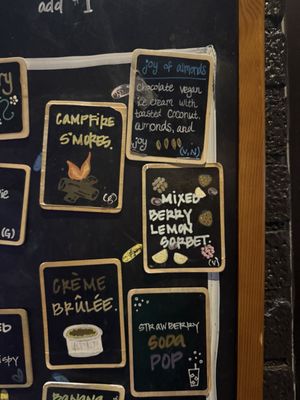 add #1
joy of almonds
chocolate vegan
ice cream with
toasted coconut,
almonds, and
joy
(V, N)
CAMPFIRE
S'MORES.
(G)
MIXED
BERRY
LEMON
SORBET.
(V)
(G)
CRÈME
BRÛLÉE.
STRAWBERRY
SODA
POP
BANANA